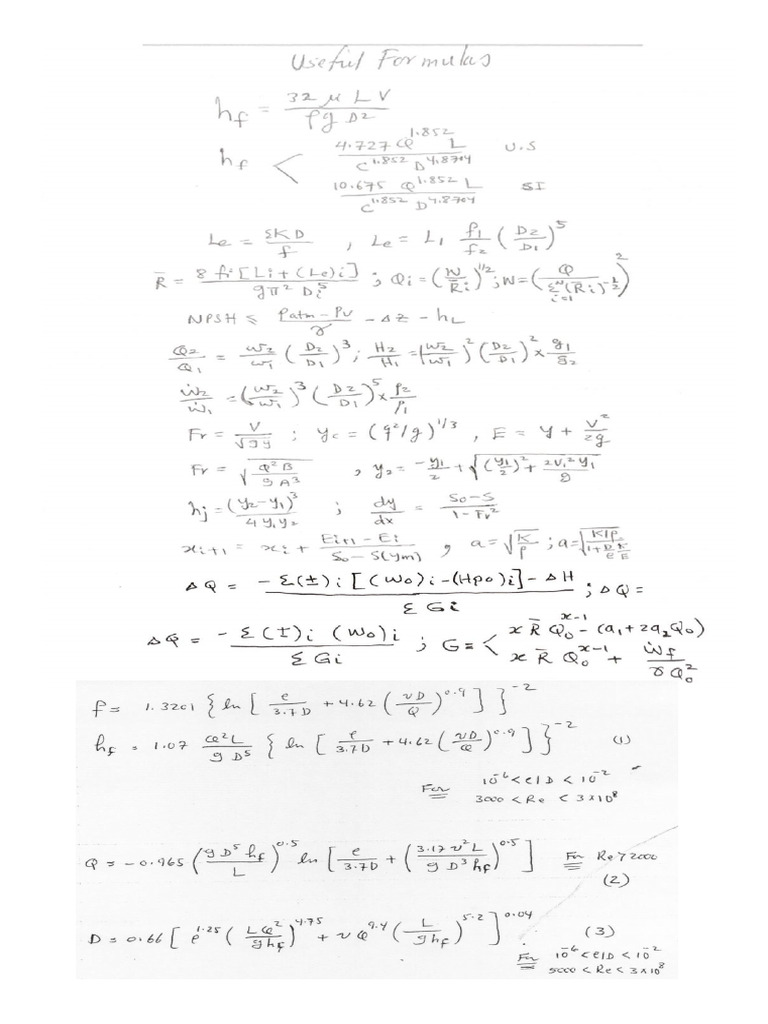 Useful Formulas
hf = 32 μ L V / ρg D2
hf < 4.727 Q^1.852 L / C^1.852 D^4.8704 U.S
10.675 Q^1.852 L / C^1.852 D^4.8704 SI
Le = ΣKD / f , Le = L1 f1/f2 (D2/D1)^5
R̄ = 8 fi [Li + (Le)i] / gπ^2 Di^5 ; Qi = (W/R̄i)^1/2 ; W = (Q / Σ^N_i=1 (R̄i)^-1/2)^2
NPSH ≤ Patm - Pv / γ - Δz - hL
Q2/Q1 = ω2/ω1 (D2/D1)^3 ; H2/H1 = (ω2/ω1)^2 (D2/D1)^2 × g1/g2
ẇ2/ẇ1 = (ω2/ω1)^3 (D2/D1)^5 × ρ2/ρ1
Fr = V/√gy ; yc = (q^2/g)^1/3 , E = y + V^2/2g
Fr = √(Q^2 B / g A^3) , y2 = -y1/2 + √((y1/2)^2 + 2V1^2 y1 / g)
hj = (y2-y1)^3 / 4y1y2 ; dy/dx = So-S / 1-Fr^2
xi+1 = xi + Ei+1 - Ei / So - S(ym) , a = √(K/ρ) ; a = √(K/ρ / 1+ D/e K/E)
ΔQ = -Σ(±)i [(Wo)i-(Hpo)i] - ΔH / ΣGi ; ΔQ =
ΔQ = -Σ(±)i (Wo)i / ΣGi ; G = < x R̄ Qo^x-1 - (a1+2a2Qo)
x R̄ Qo^x-1 + Ẇf / γQo^2
f = 1.3201 {ln [e/3.7D + 4.62 (νD/Q)^0.9]}^-2
hf = 1.07 Q^2L / g D^5 {ln [e/3.7D + 4.62 (νD/Q)^0.9]}^-2 (1)
For 10^-6 < e/D < 10^-2
3000 < Re < 3×10^8
Q = -0.965 (g D^5 hf / L)^0.5 ln [e/3.7D + (3.17 ν^2 L / g D^3 hf)^0.5] For Re > 2000
(2)
D = 0.66 [e^1.25 (LQ^2/ghf)^4.75 + ν Q^9.4 (L/ghf)^5.2]^0.04 (3)
For 10^-6 < e/D < 10^-2
5000 < Re < 3×10^8